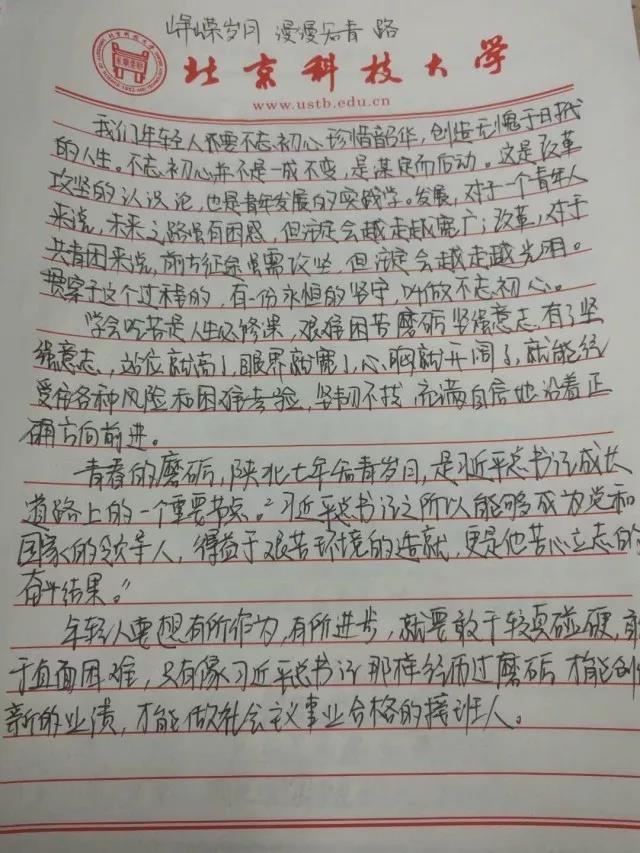 峥嵘岁月 漫漫知青路
北京科技大学
www.ustb.edu.cn
我们年轻人不要不忘初心珍惜韶华，创造无愧于时代
的人生。不忘初心并不是一成不变，是谋定而后动。这是改革
攻坚的认识论，也是青年发展的实践学。发展，对于一个青年人
来说，未来之路虽有困惑，但注定会越走越宽广；改革，对于
共青团来说，前方征途虽需攻坚，但注定会越走越光明。
贯穿于这个过程的，有一份永恒的坚守，叫做不忘初心。
学会吃苦是人生必修课，艰难困苦磨砺坚强意志，有了坚
强意志，站位就高了，眼界就宽了，心胸就开阔了，就能经
受住各种风险和困难考验，坚韧不拔、充满自信地沿着正
确方向前进。
青春的磨砺，陕北七年知青岁月，是习近平总书记成长
道路上的一个重要节点。“习近平总书记之所以能够成为党和
国家的领导人，得益于艰苦环境的造就，更是他苦心立志的
奋斗结果。”
年轻人要想有所作为，有所进步，就要敢于较真碰硬，敢
于直面困难，只有像习近平总书记那样经历过磨砺才能创
新的业绩，才能做社会主义事业合格的接班人。